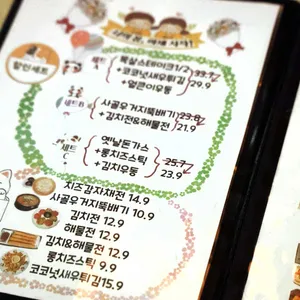 할인세트
목살스테이크1/2
+코코넛새우튀김 33.7
+얼큰이우동 29.9
세트B
사골우거지뚝배기 23.8
+김치전&해물전 21.9
세트
옛날돈가스
+롱치즈스틱 25.7
+김치우동 23.9
치즈감자채전 14.9
사골우거지뚝배기 10.9
김치전 12.9
해물전 12.9
김치&해물전 12.9
롱치즈스틱 9.9
코코넛새우튀김 15.9